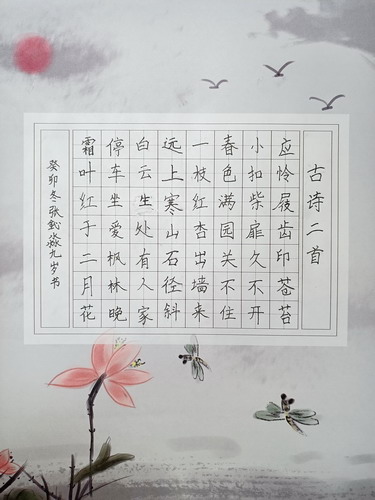 古诗二首
应怜屐齿印苍苔
小扣柴扉久不开
春色满园关不住
一枝红杏出墙来
远上寒山石径斜
白云生处有人家
停车坐爱枫林晚
霜叶红于二月花
癸卯冬张淼九岁书